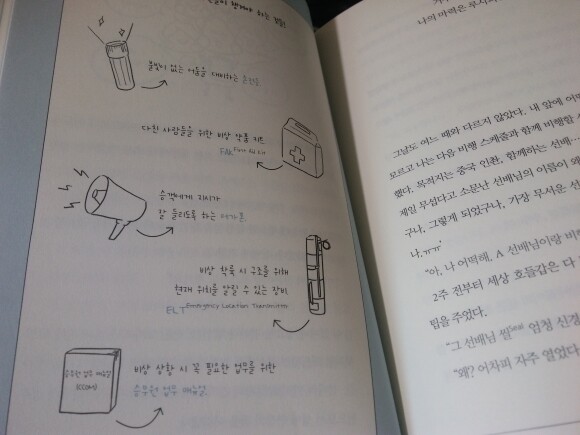 하는 것들!
불빛이 없는 어둠을 대비하는 손전등
다친 사람들을 위한 비상 약품 키트
FAK First Aid Kit
승객에게 지시가
잘 들리도록 하는 메가폰
비상 착륙 시 구조를 위해
현재 위치를 알릴 수 있는 장비
ELT Emergency Location Transmitter
승무원 업무 매뉴얼
(CCOM)
비상 상황 시 꼭 필요한 업무를 위한
승무원 업무 매뉴얼
나의 마력은 무서
그날도 여느 때와 다르지 않았다. 내 앞에 어떤
모르고 나는 다음 비행 스케줄과 함께 비행할
했다. 목적지는 중국 인촨, 함께하는 선배…
제일 무섭다고 소문난 선배님의 이름이
구나, 그렇게 되었구나, 가장 무서운 선
나,ㅠㅠ'
"아, 나 어떡해, A 선배님이랑 비행
2주 전부터 세상 호들갑은 다
팁을 주었다.
"그 선배님 씰seal 엄청 신경
"왜? 어차피 자주 열었다